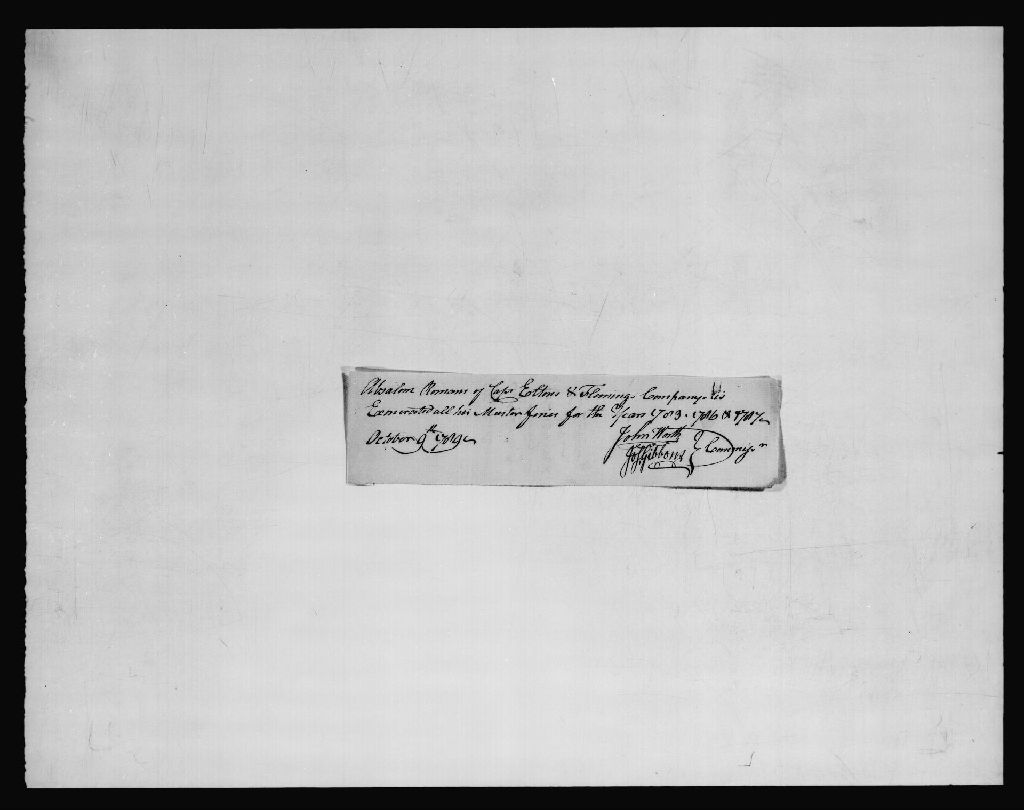 Absalom Romans of Capt Eoltons & Fleming Company is
Exonerated all his Muster fines for the Years 1783. 1786 & 1787
October 9th 1789
John Worth
Jos Gibbons } Commisrs